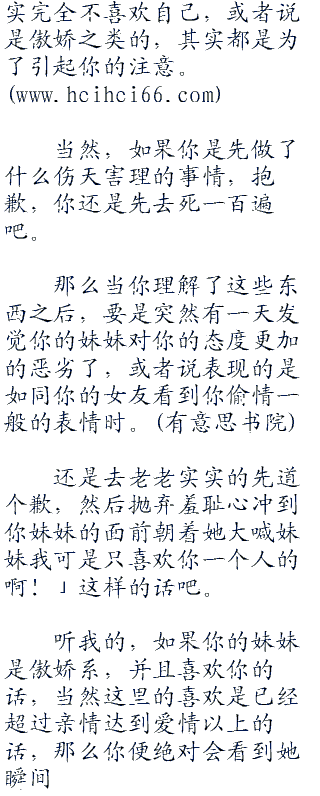 实完全不喜欢自己，或者说
是傲娇之类的，其实都是为
了引起你的注意。
(www.hcihci66.com)
当然，如果你是先做了
什么伤天害理的事情，抱
歉，你还是先去死一百遍
吧。
那么当你理解了这些东
西之后，要是突然有一天发
觉你的妹妹对你的态度更加
的恶劣了，或者说表现的是
如同你的女友看到你偷情一
般的表情时。(有意思书院)
还是去老老实实的先道
个歉，然后抛弃羞耻心冲到
你妹妹的面前朝着她大喊妹
妹我可是只喜欢你一个人的
啊！」这样的话吧。
听我的，如果你的妹妹
是傲娇系，并且喜欢你的
话，当然这里的喜欢是已经
超过亲情达到爱情以上的
话，那么你便绝对会看到她
瞬间